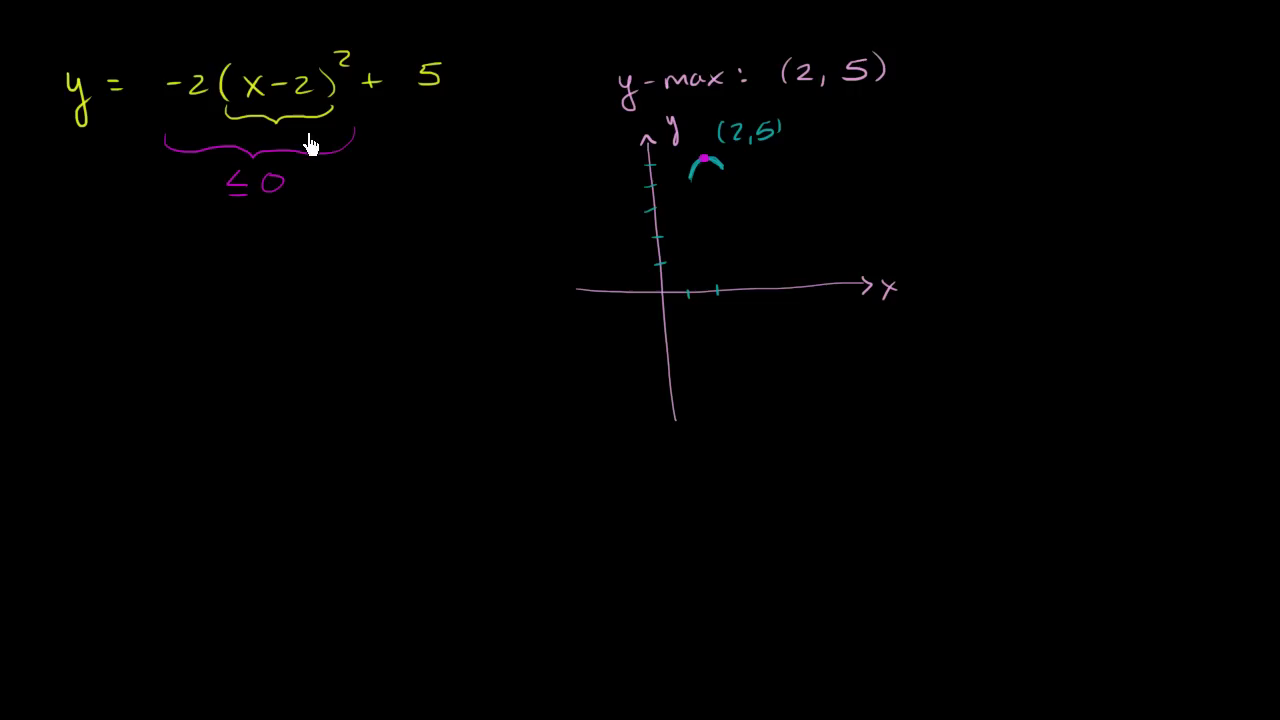 y = -2(x-2)² + 5
≤ 0
y-max: (2, 5)
y
(2,5)
x